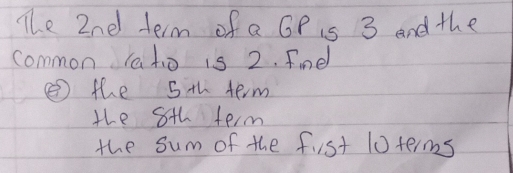 The 2nd term of a GP is 3 and the
common ratio is 2. find
@ the 5th term
the 8th term
the sum of the first 10 terms